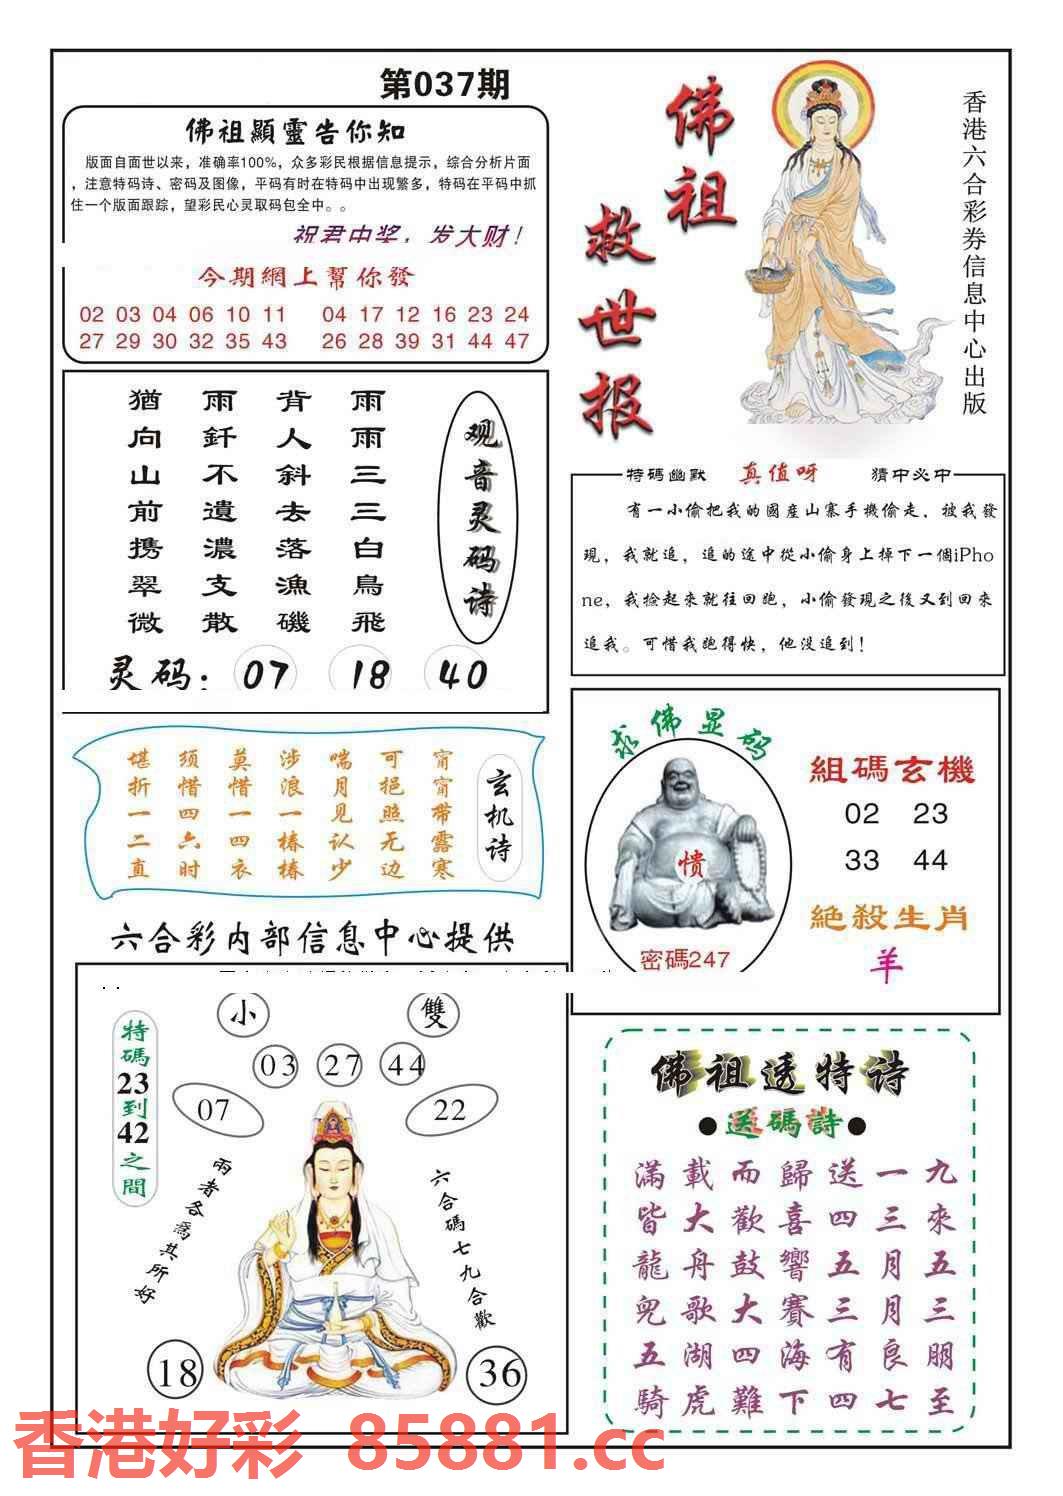 第037期
佛祖顯靈告你知
版面自面世以来，准确率100%，众多彩民根据信息提示，综合分析片面
，注意特码诗、密码及图像，平码有时在特码中出现繁多，特码在平码中抓
住一个版面跟踪，望彩民心灵取码包全中。。
祝君中奖，发大财！
今期網上幫你發
02 03 04 06 10 11 04 17 12 16 23 24
27 29 30 32 35 43 26 28 39 31 44 47
佛祖
救世报
香港六合彩券信息中心出版
观音灵码诗
雨雨三三白鳥飛
背人斜去落漁磯
雨釺不遺濃支散
猶向山前携翠微
灵码：07 18 40
特碼幽默 真值呀 猜中必中
有一小偷把我的國産山寨手機偷走，被我發
現，我就追，追的途中從小偷身上掉下一個iPho
ne，我撿起來就往回跑，小偷發現之後又到回來
追我。可惜我跑得快，他没追到！
玄机诗
甯甯带露寒
可挹照无边
喘月见认少
涉浪一椿椿
莫惜一四衣
须惜四六时
堪折一二直
求佛显码
愦
密碼247
組碼玄機
02 23
33 44
絶殺生肖
羊
六合彩内部信息中心提供
小 雙
03 27 44
07 22
特碼23到42之間
兩者各爲其所好
六合碼七九合歡
18 36
佛祖透特诗
●送碼詩●
滿載而歸送一九
皆大歡喜四三來
龍舟鼓響五月五
兜歌大賽三月三
五湖四海有良朋
騎虎難下四七至
香港好彩 85881.cc